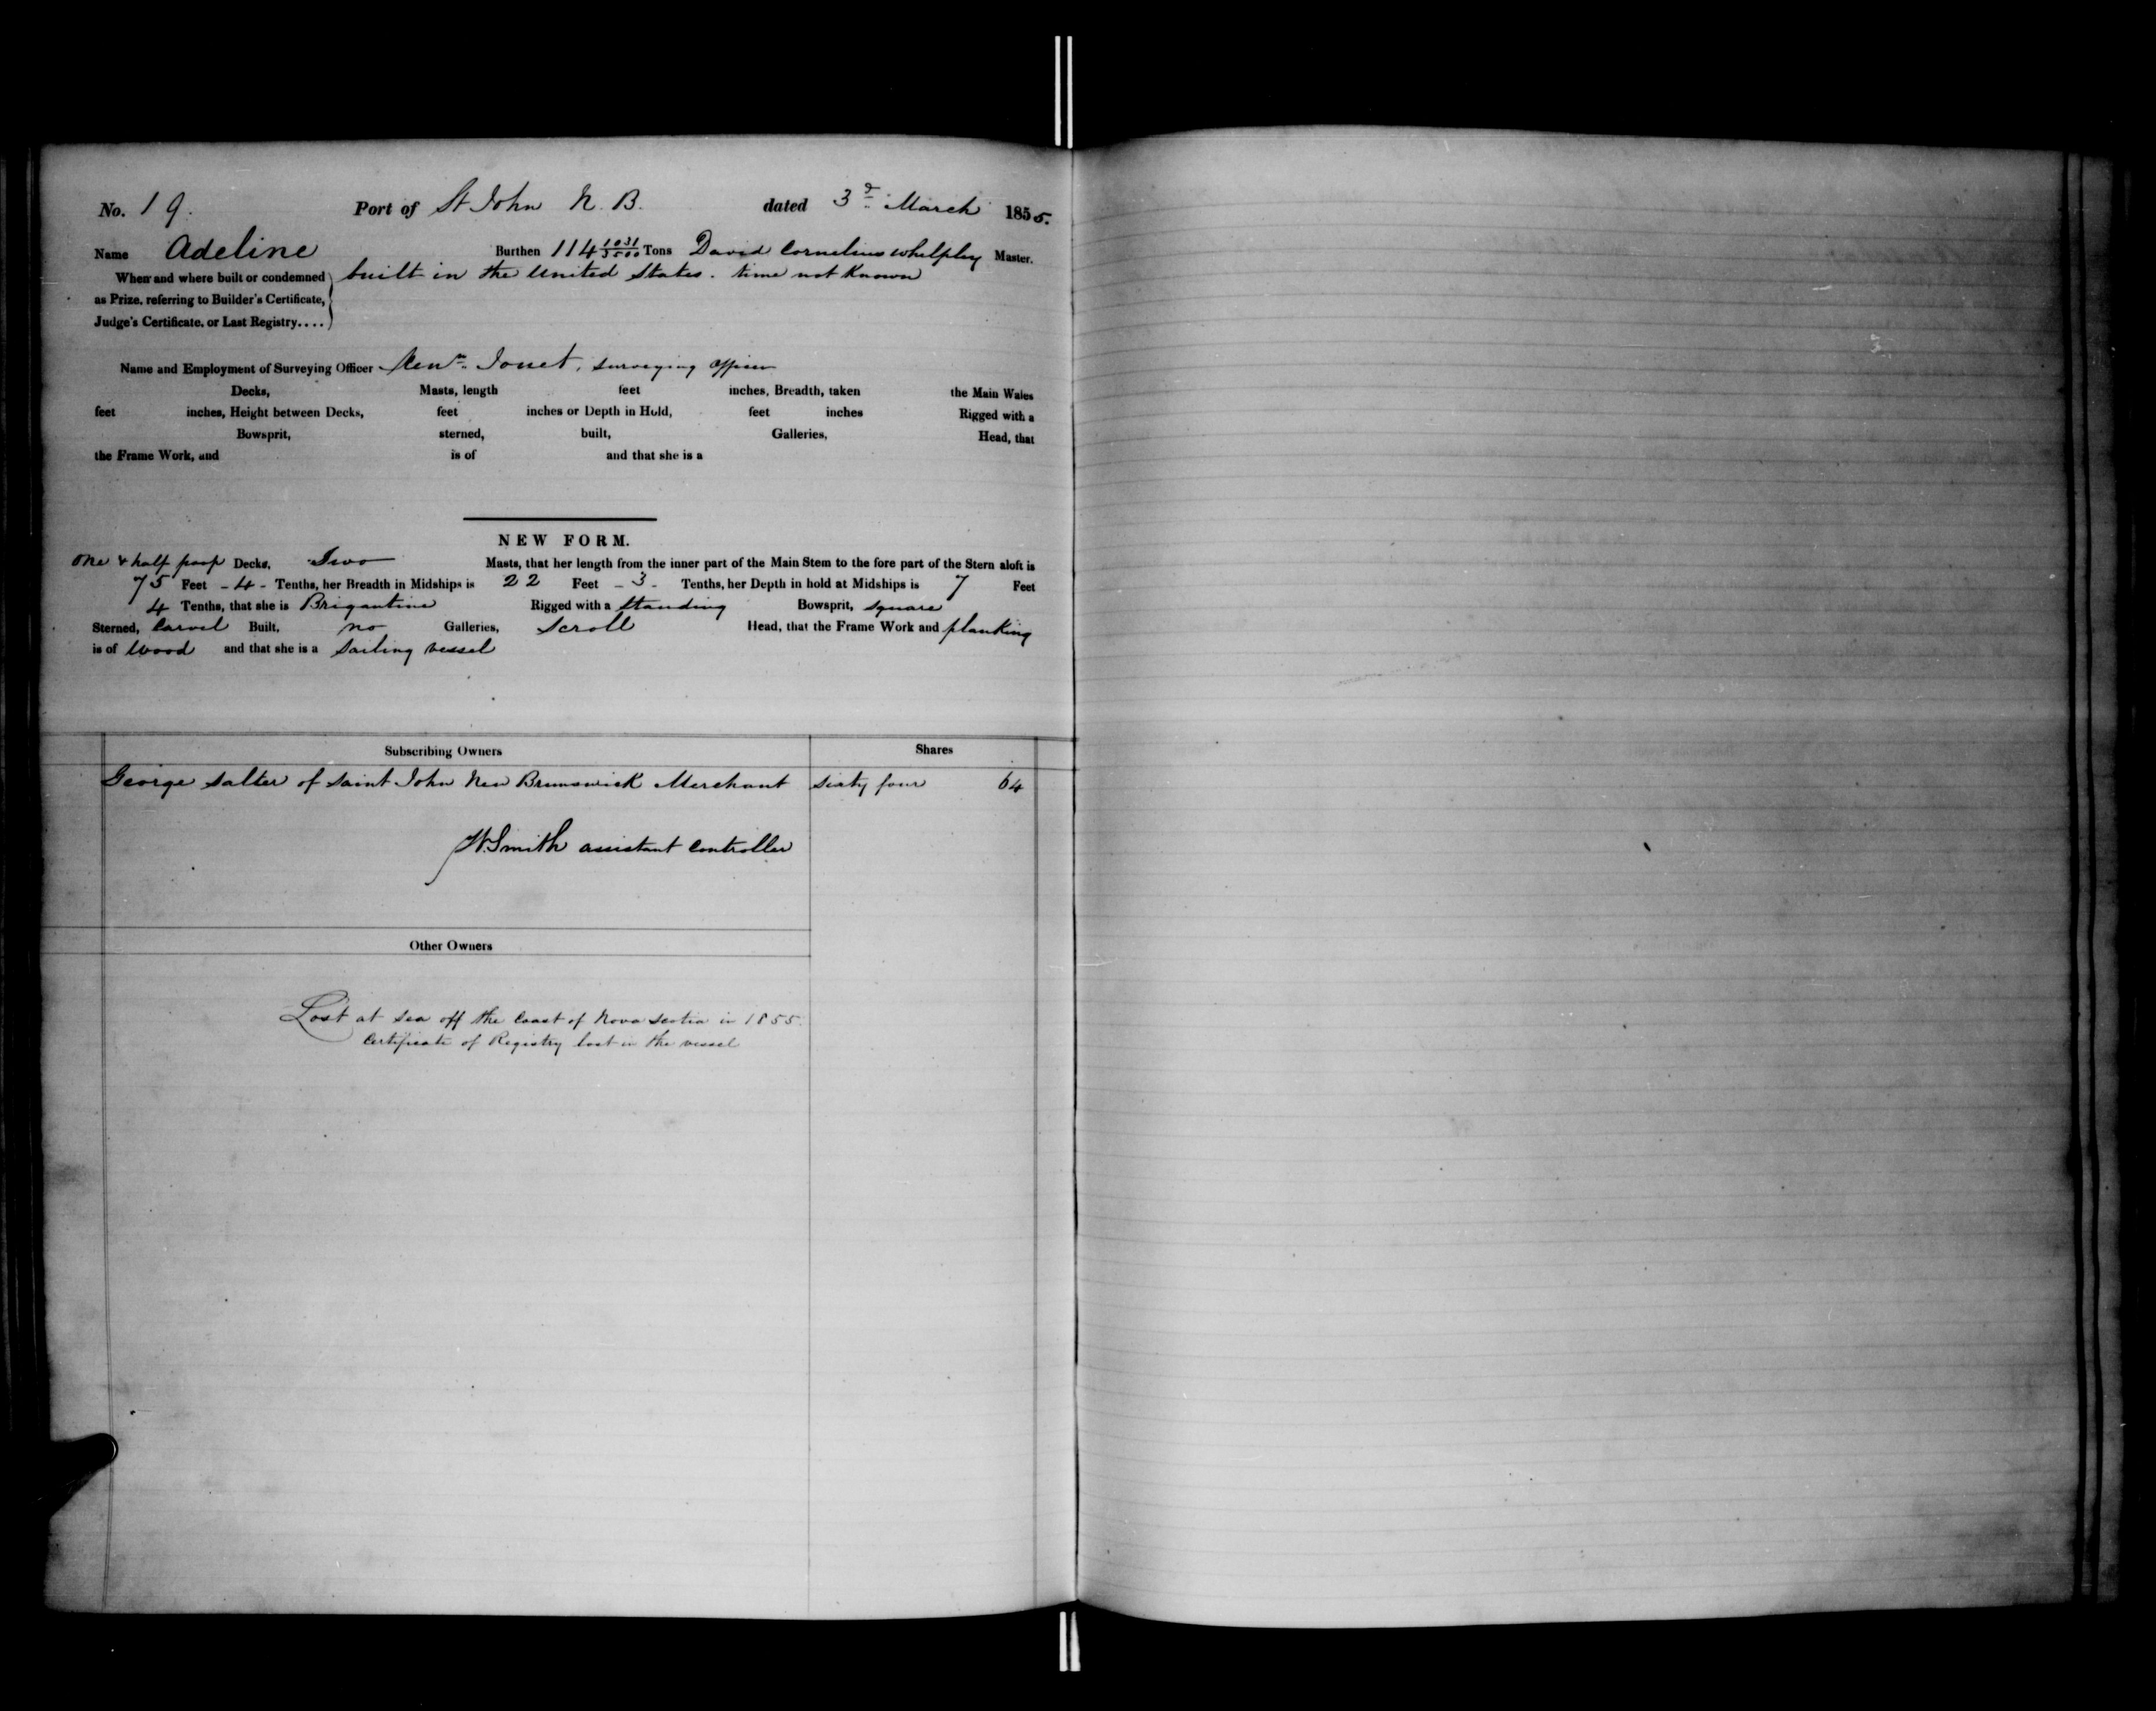 No. 19. Port of St John N. B. dated 3d March 1855.
Name Adeline Burthen 114 1031/3500 Tons David Cornelius Whelpley Master.
When and where built or condemned built in the United States. time not Known
as Prize, referring to Builder's Certificate,
Judge's Certificate, or Last Registry....
Name and Employment of Surveying Officer surveying officer
Decks, Masts, length feet inches, Breadth, taken the Main Wales
feet inches, Height between Decks, feet inches or Depth in Hold, feet inches Rigged with a
Bowsprit, sterned, built, Galleries, Head, that
the Frame Work, and is of and that she is a
NEW FORM.
One & half poop Decks, Two Masts, that her length from the inner part of the Main Stem to the fore part of the Stern aloft is
75 Feet - 4 - Tenths, her Breadth in Midships is 22 Feet - 3 - Tenths, her Depth in hold at Midships is 7 Feet
4 Tenths, that she is Brigantine Rigged with a standing Bowsprit, square
Sterned, Carvel Built, no Galleries, Scroll Head, that the Frame Work and planking
is of Wood and that she is a Sailing vessel
Subscribing Owners Shares
George Salter of Saint John New Brunswick Merchant sixty four 64
W. Smith assistant Controller
Other Owners
Lost at sea off the Coast of Nova Scotia in 1855.
Certificate of Registry lost in the vessel